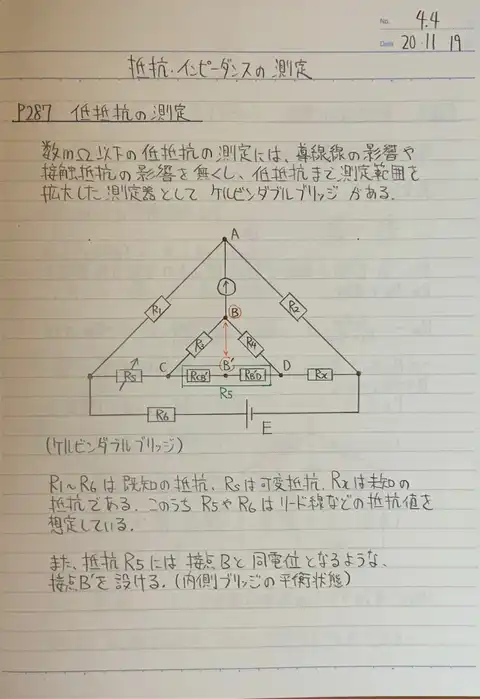 No. 4.4
Date 20・11・19
抵抗・インピーダンスの測定
P287 低抵抗の測定
数mΩ以下の低抵抗の測定には、導線線の影響や
接触抵抗の影響を無くし、低抵抗まで測定範囲を
拡大した測定器として ケルビンダブルブリッジ がある。
A
R1
R2
B
R3
R4
Rs
C
RCB'
B'
RB'D
D
Rx
R5
R6
E
(ケルビンダブルブリッジ)
R1~R6 は既知の抵抗、Rsは可変抵抗、Rxは未知の
抵抗である。このうち R5やR6はリード線などの抵抗値を
想定している。
また、抵抗R5には 接点Bと 同電位となるような、
接点B'を設ける。(内側ブリッジの平衡状態)